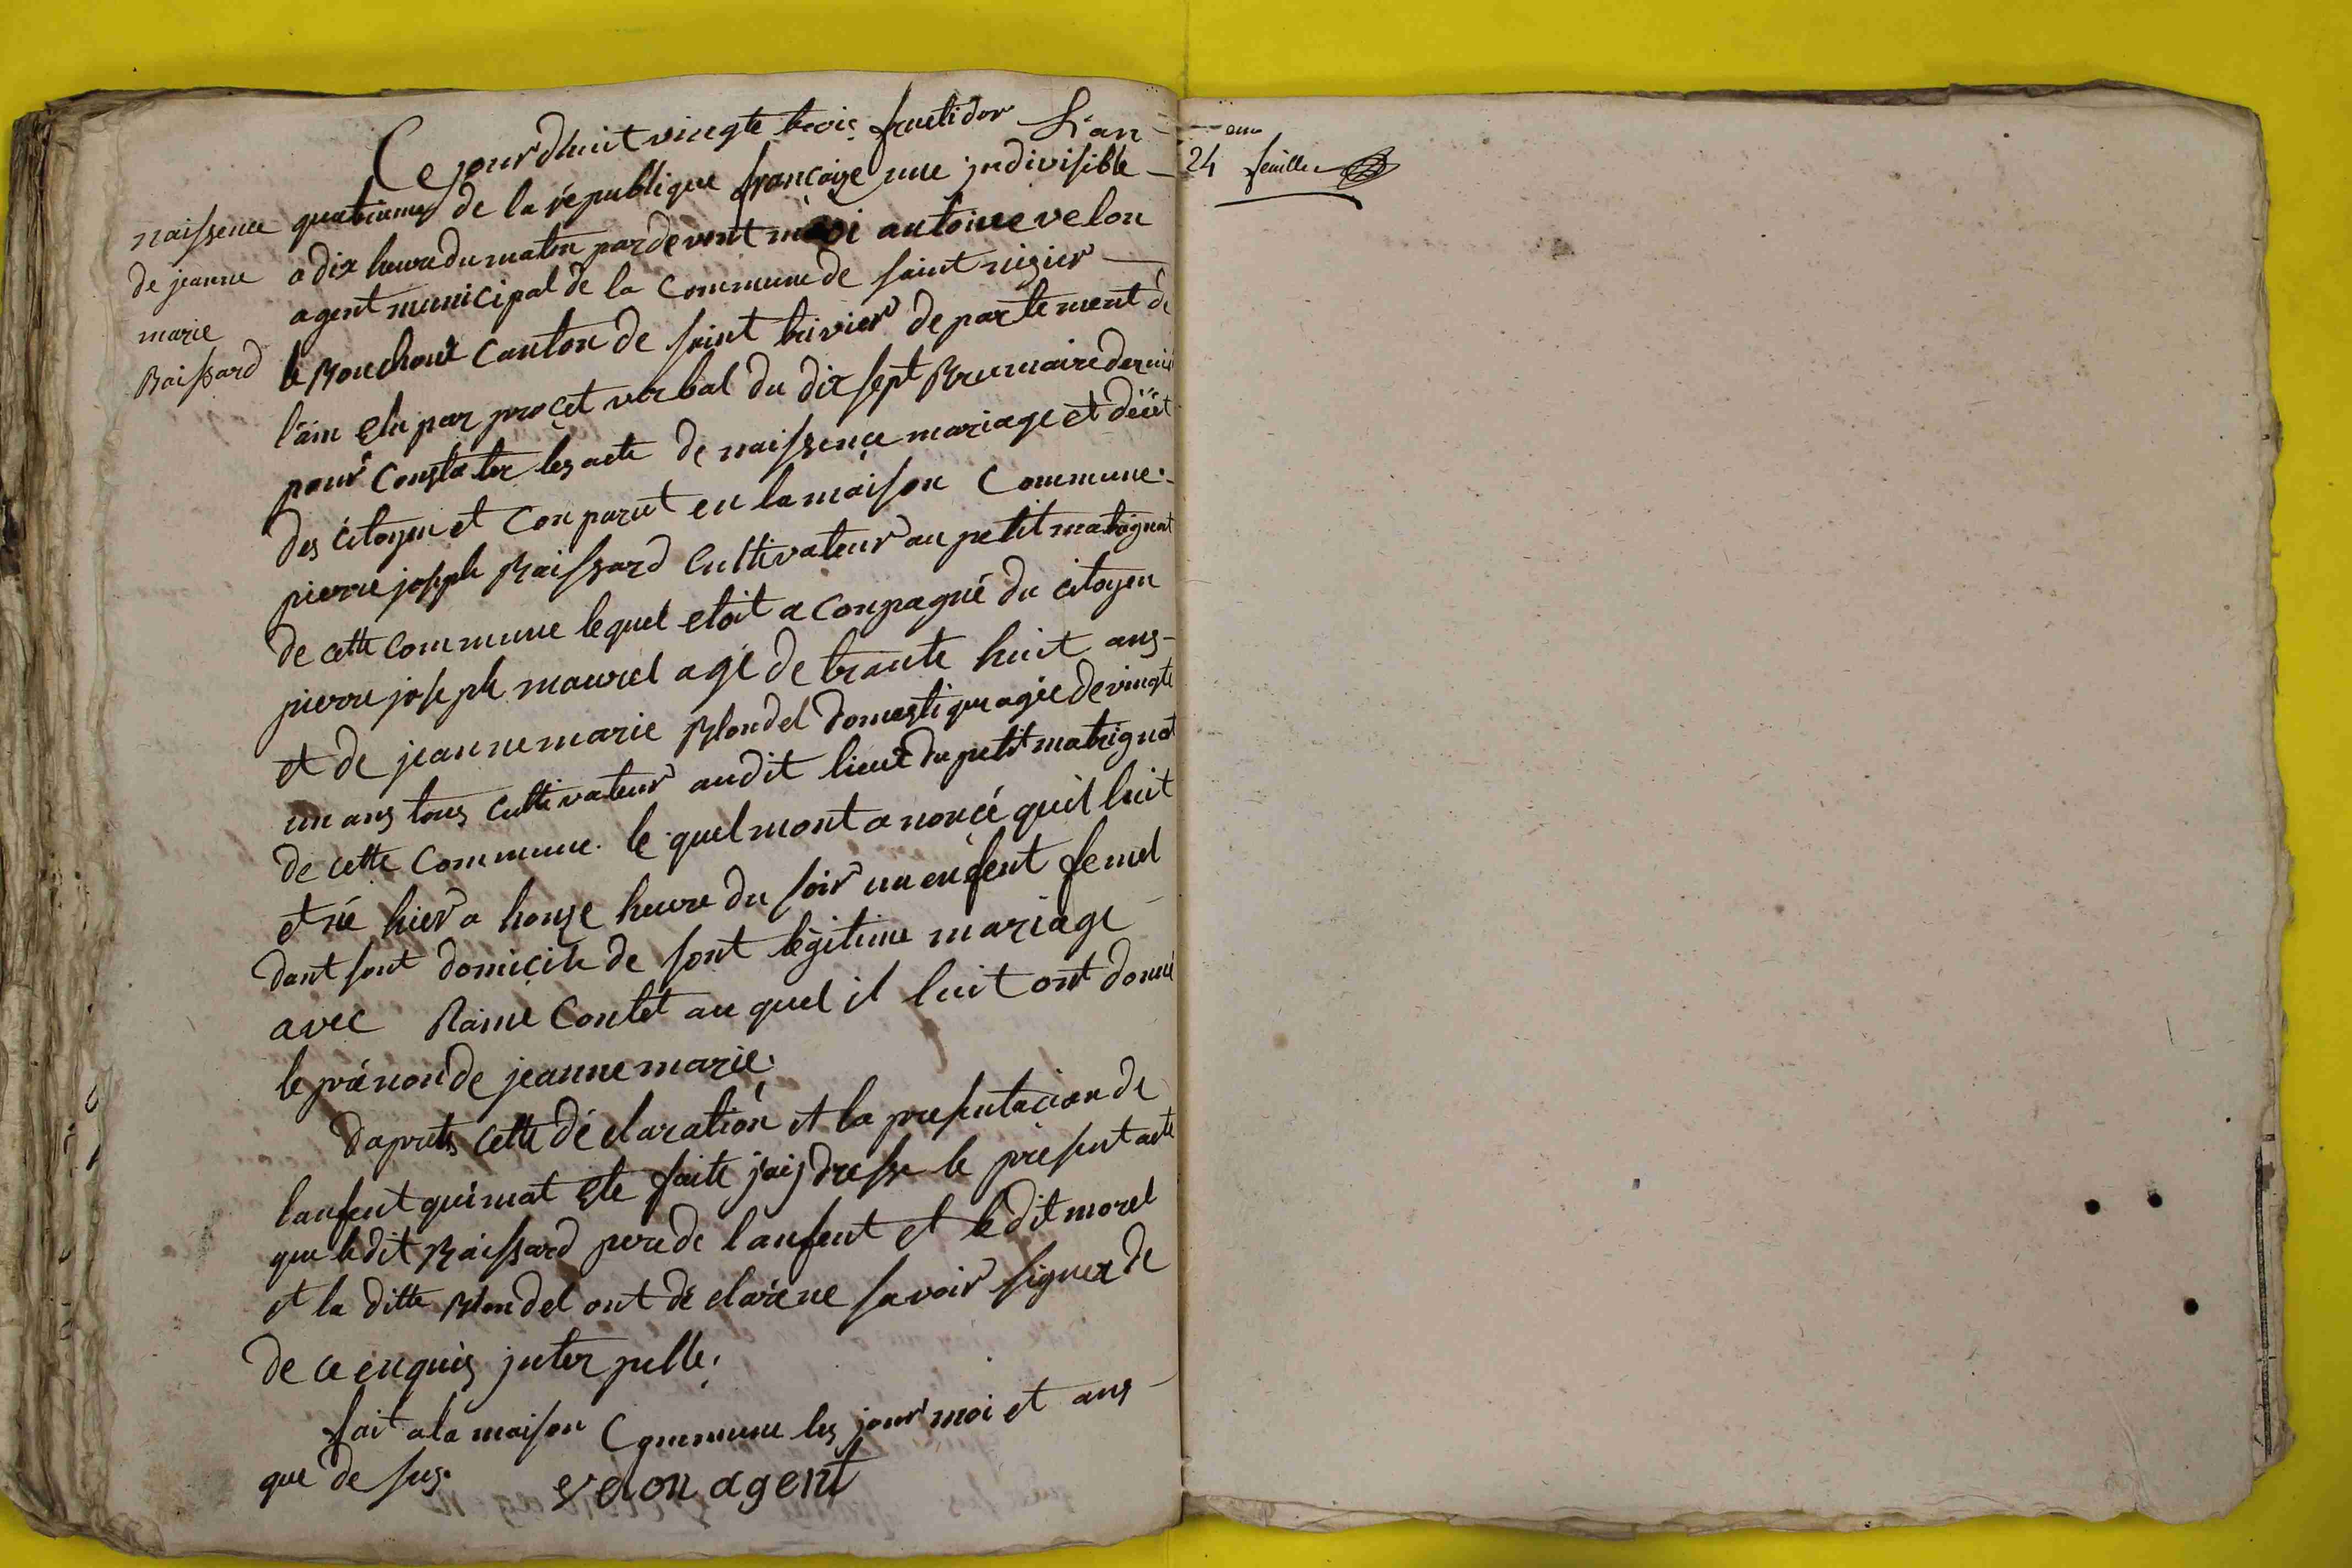 naissence
de jeanne
marie
Baissard
Ce jourdhuit vingte trois fructidor L'an
quatriemes de la république françoise une jndivisible
a dix heure du matin pardevent moi antoine velon
agent municipal de la Commune de saint nisier
le Bouchout Canton de saint trivier departement de
l'ain elu par procet verbal du dix sept Brumaire dernié
pour Constater les acte de naissence mariage et décét
des citoyen et Conparut en la maison Commune.
pierre joseph Baissard Cultivateur au petit matrignat
de cette Commune lequel etoit a Conpagné du citoyen
pierre joseph maurel agé de trante huit ans
et de jeanne marie Blondel domestique agée de vingte
un ans tous Cultivateur audit lieut du petit matrignat
de cette Commune. le quel mont anoncé quil luit
et né hier a honze heure du soir un enfent femel
dant sont domicile de sont légitime mariage
avec Contet au quel il luit ont donné
le prénon de jeanne marie.
daprets cette déclaration et la presentacion de
lanfent qui mat ete faite jaij dresse le présent acte
que ledit Baissard pere de lanfent et ledit morel
et la ditte Blondel ont déclaré ne savoir signer de
de ce enquis jnterpelle.
fait a la maison Commune les jour moi et ans
que desus. velon agent
24 feuille